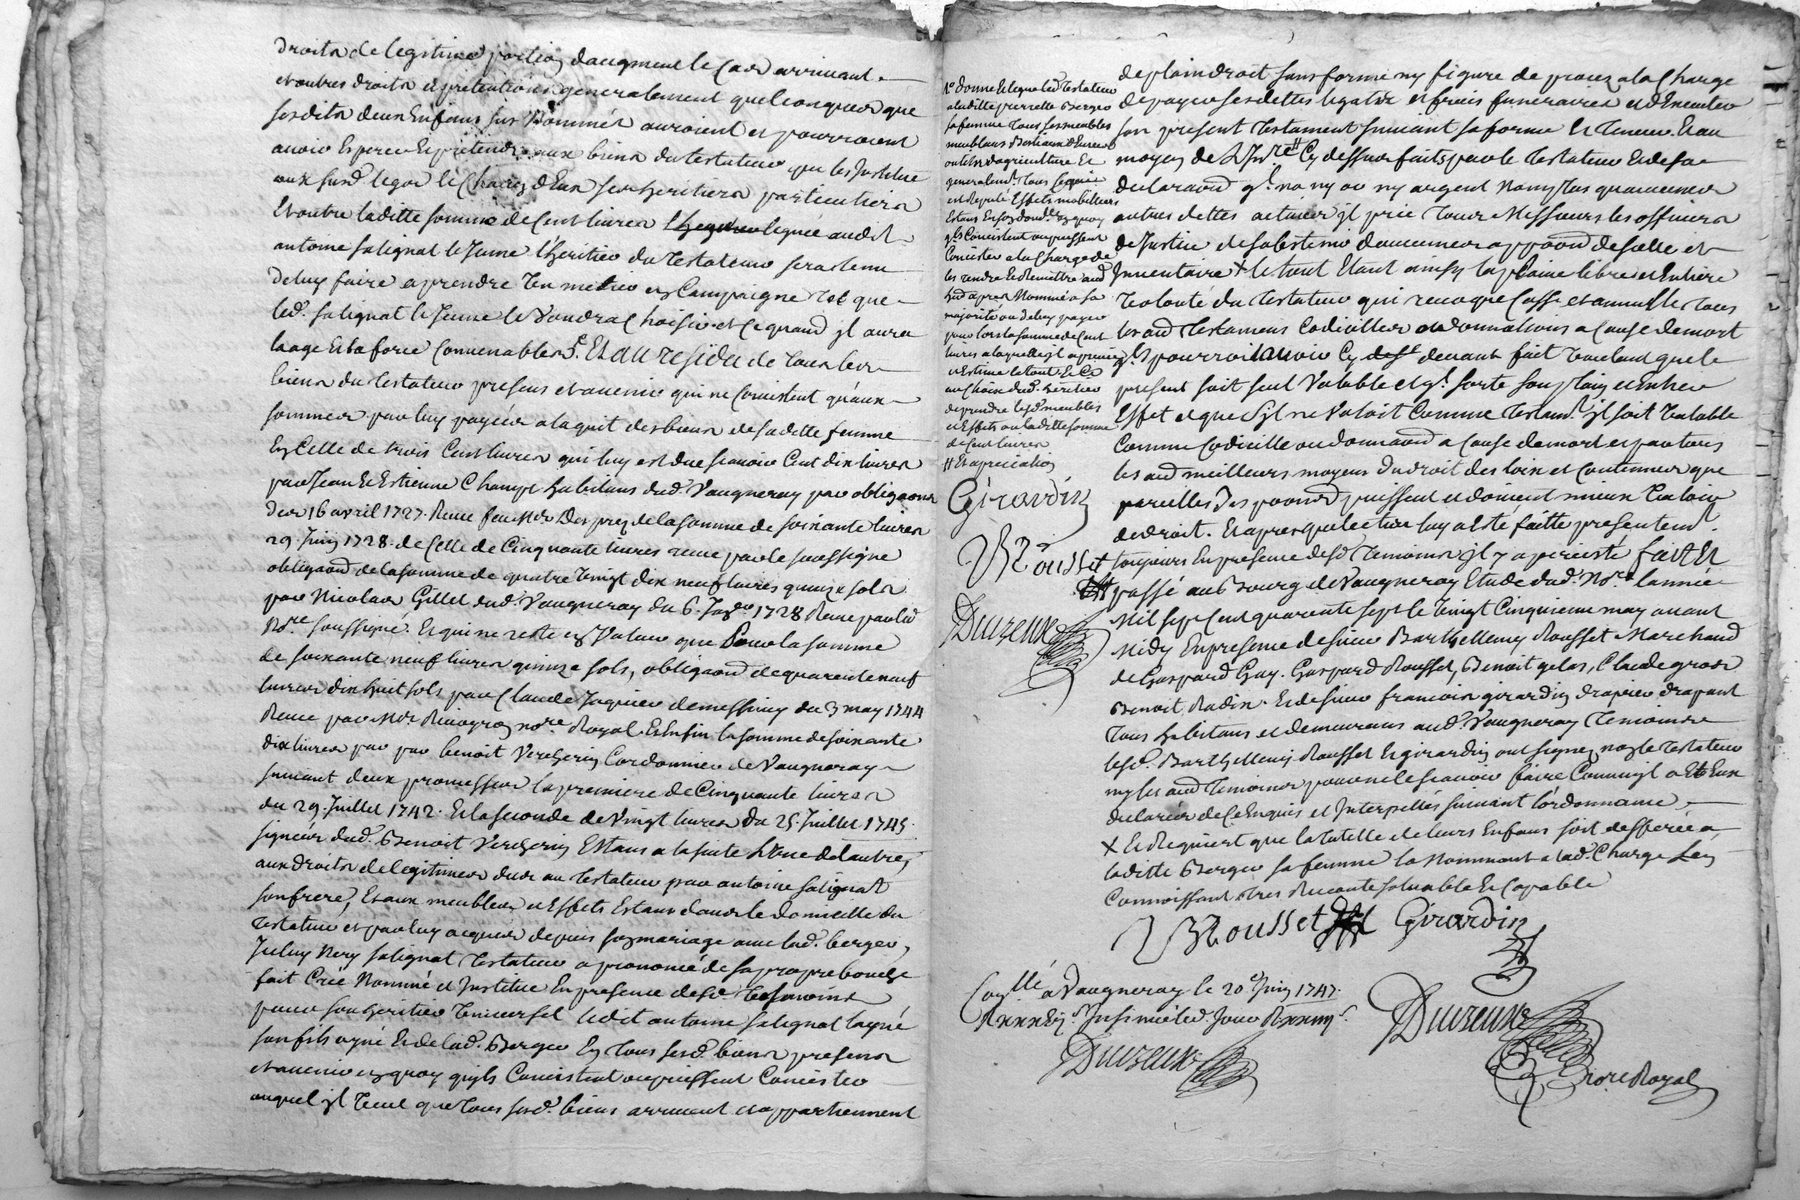 droits de legitime portion daugment le cas arrivant
et autres droits et pretentions generalement quelconques que
sesdits deux Enfans sus Nommés auroient et pourroient
avoir Esperer Et pretendre aux biens du testateur que les Institue
aux susd. legats Et Chacun d'Eux ses heritiers particuliers
Et outre laditte somme de Cent livres leguée aud.
antoine salignat le Jeune l'heritier du Testateur sera tenu
de luy faire aprendre un metier en Campaigne tel que
led. salignat le Jeune le voudra Choisir et ce quand il aura
laage Et la force Convenables. Et au residu de tous les
biens du testateur presens et avenir qui ne Consistent qu'aux
sommes par luy payées a laquit des biens de sa ditte femme
En Celle de trois Cent livres qui luy est due scavoir Cent dix livres
par Jean Et Estienne Champt habitans dud. Vaugneray par obligaons
des 16 avril 1727. Receue feu Mer Desprez de la somme de soixante livres
29 Juin 1728. de Celle de Cinquante livres receue par le soussigné
obligaon de la somme de quatre vingt dix neuf livres quinze sols
par Nicolas Gillet dud. Vaugneray du 6. 1728 Receue par led.
Nore soussigné. Et qui ne reste en Valeur que pour la somme
de soixante neuf livres quinze sols, obligaon de quarente neuf
livres dix huit sols par Claude Jaquier de messimy du 3 may 1744
Receue par Mer nore Royal. Et Enfin la somme de soixante
dix livres par par benoit Vercherin Cordonnier de Vaugneray
suivant deux promesses la premiere de Cinquante livres
du 29. Juillet 1742. Et la seconde de Vingt livres du 25 Juillet 1745.
signées dud. Benoit Vercherin Estans a la suite L'une de l'autre,
aux droits de legitimes dus au Testateur par antoine salignat
son frere, Et aux meubles et Effets Estans dans le domicille du
Testateur et par luy acquis depuis son mariage avec lad. berger,
Iceluy salignat Testateur a prononcé de sa propre bouche
fait Créé Nommé et Institué En presence desd. Tesmoins
pour son heritier Universel ledit antoine salignat layné
son fils ayné Et de lad. Berger En tous sesd. biens presens
et avenir en quoy quils Consistent ou puissent Consister
auquel il veut que tous sesd. biens arrivent et appartiennent
donne Et legue led. Testateur
a laditte pierrette Berger
sa femme tous ses meubles
meublans Bestiaux denrées
outils d'agriculture Et
generalemt. tous
Effets mobilliers
Estans
quils Consistent ou puissent
Consister a la Charge de
les rendre Et Remettre aud.
apres Nommé a sa
majorité ou de luy payer
pour lors la somme de Cent
livres a laquelle il a
et Estimé le tout Et Ce
au Choix dud. heritier
de prendre lesd. meubles
et Effets ou laditte somme
de Cent livres
# Et apretiation
Girardin
BRousset
Duizeux
de plain droit sans forme ny figure de procez a la Charge
de payer ses dettes legats et frais funeraires et d'Executer
son present Testament suivant sa forme Et Teneur. Et au
moyen de Cy dessus faits par le Testateur Et de sa
declaraon ql. na ny or ny argent Non plus quaucunes
autres dettes actives il prie tous Messieurs les officiers
de Justice de sabstenir d'aucunes appaon de scellé et
Inventaire X le tout Etant ainsy la plaine libre et Entiere
Volonté du Testateur qui revoque Casse et annulle tous
les aud Testamens Codicilles ou donnations a Cause de mort
quil pourroit avoir Cy devant fait voulant que le
present soit seul Valable et ql. sorte son plain et entier
Effet et que S'il ne Valoit Comme Testamt. il soit Valable
Comme Codicille ou donnaon a Cause de mort et par tous
les aud meilleurs moyens du droit des loix et Coutumes que
pareilles puissent et doivent mieux Valoir
de droit. Et apres que lecture luy a Esté faitte presentemt.
toujours En presence desd Temoins il y a persisté fait et
passé au Bourg de Vaugneray Etude dud. Nore lannée
Mil sept Cent quarente sept le Vingt Cinquieme may avant
Midy En presence de sieur Barthellemy Rousset Marchand
de Gaspard Guy. Gaspard Rousset, Benoit gelas, Claude gros
Benoit Radix. Et de sieur francois girardin drapier drapant
Tous habitans et demeurans aud. Vaugneray Temoins
lesd. Barthellemy Rousset Et girardin ont signez non le Testateur
ny les aud Temoins pour ne le scavoir faire Comme il a Et Eux
declarés de Ce Enquis et Interpellés suivant l'ordonnance.
X Et Requiert que la tutelle de leurs Enfans soit defferée a
laditte Berger sa femme la Nommant a lad. Charge La
Connoissant tres Rescente solvable Et Capable
BRousset Girardin
Conllé a Vaugneray le 20e Juin 1747.
Insinué led. Jour
Duizeux
Duizeux
nore Royal